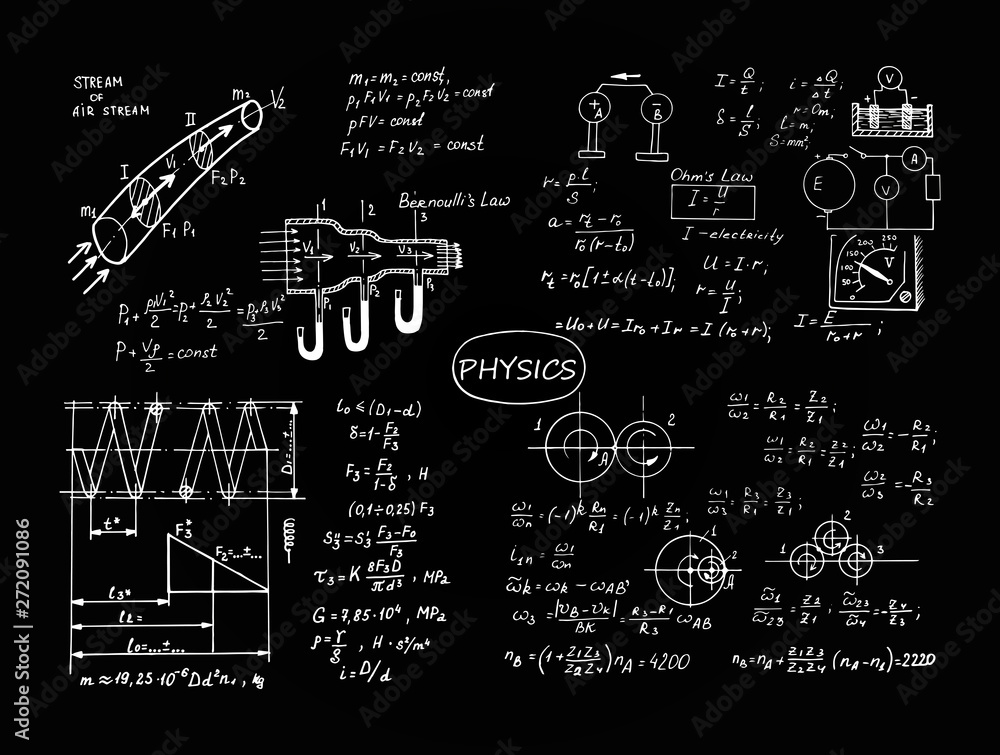 STREAM
OF
AIR STREAM
m₂
V₂
II
I
V₁
F₂ P₂
m₁
F₁ P₁
m₁=m₂=const,
p₁F₁V₁=p₂F₂V₂=const
pFV=const
F₁V₁=F₂V₂=const
Bernoulli's Law
1
2
3
V₁
V₂
V₃
P₁
P₂
P₃
P₁+ρ₁V₁²/2=P₂+ρ₂V₂²/2=P₃+ρ₃V₃²/2
P+Vρ/2=const
+
A
−
B
I=Q/t;
i=ΔQ/Δt;
δ=l/S;
r=Om;
l=m;
S=mm²;
V
+
−
r=ρ.l/S;
Ohm's Law
I=u/r
I-electricity
a=rt-r₀/r₀(r-t₀)
rt=r₀[1±α(t-t₀)];
U=I·r;
r=u/I;
=U₀+U=Ir₀+Ir=I(r₀+r);
I=E/r₀+r;
+
−
E
V
A
0
50
100
150
200
250
V
PHYSICS
D₁=...±...
t*
F₃*
F₂=...±...
l₃*
l₂=
l₀=...±...
m≈19,25·10⁻⁶Dd²n₁, kg
l₀≤(D₁-d)
δ=1-F₂/F₃
F₃=F₂/1-δ, H
(0,1÷0,25)F₃
S₃'=S₃'F₃-F₀/F₃
τ₃=K 8F₃D/πd³, MPa
G=7,85·10⁴, MPa
ρ=γ/g, H·s²/m⁴
i=D/d
1
2
A
ω₁/ω₂=R₂/R₁=Z₂/Z₁;
ω₁/ω₂=R₂/R₁=Z₂/Z₁;
ω₁/ω₂=-R₂/R₁;
ω₁/ω₃=R₃/R₁=Z₃/Z₁;
ω₂/ω₃=-R₃/R₂;
ω₁/ωn=(-1)ᵏRn/R₁=(-1)ᵏZn/Z₁;
i₁n=ω₁/ωn
ω̃k=ωk-ωAB'
ω₃=|υB-υk|/BK=R₃-R₁/R₃ωAB
1
2
A
1
2
3
ω̃₁/ω̃₂₃=Z₂/Z₁;
ω̃₂₃/ω̃₄=-Z₄/Z₃;
nB=(1+Z₁Z₃/Z₂Z₄)nA=4200
nB=nA+Z₁Z₃/Z₂Z₄(nA-n₁)=2220
Adobe Stock | #272091086
Adobe Stock